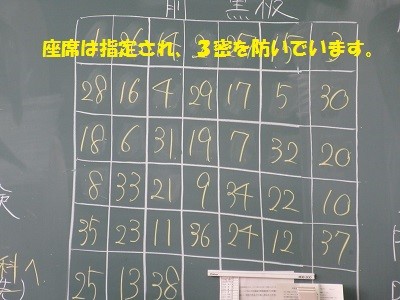 前 黒板
座席は指定され、３密を防いでいます。
28 16 4 29 17 5 30
18 6 31 19 7 32 20
8 33 21 9 34 22 10
35 23 11 36 24 12 37
検
科へ
25 13 38